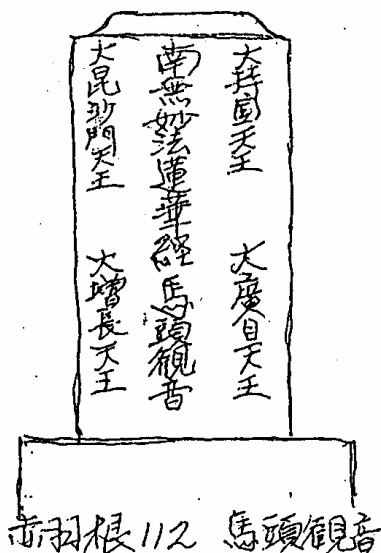 大持國天王 大廣目天王
南無妙法蓮華経 馬頭観音
大昆沙門天王 大増長天王
赤羽根112 馬頭観音